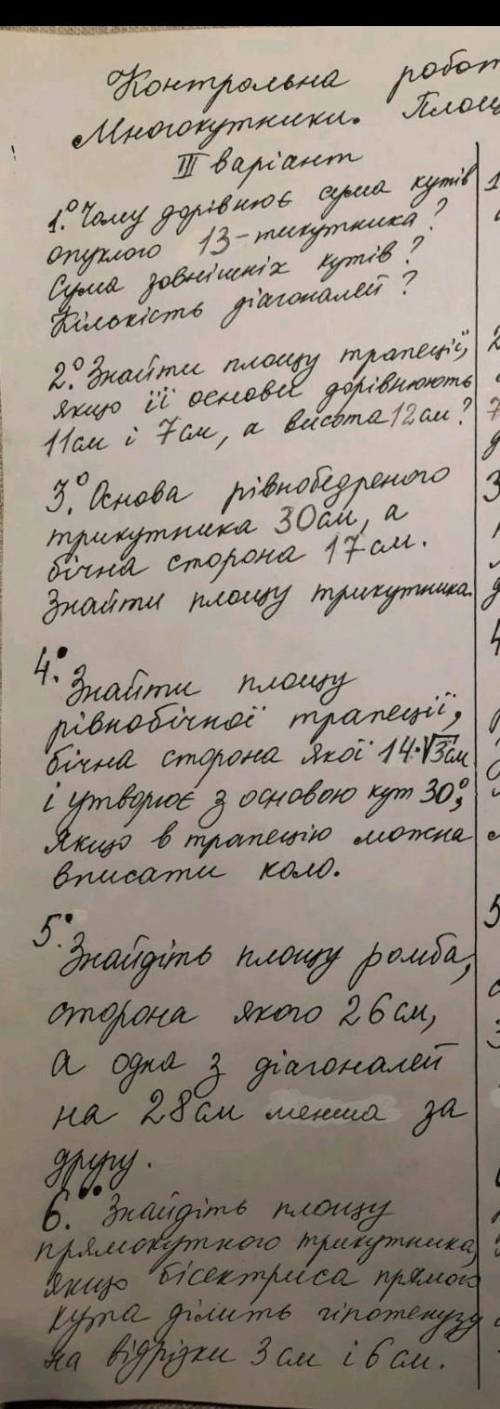 Контрольна робот
Многокутники. Площ
III варіант
1.° Чому дорівнює сума кутів
опуклого 13-тикутника?
Сума зовнішніх кутів?
Кількість діагоналей?
2.° Знайти площу трапеції,
якщо її основи дорівнюють
11см і 7см, а висота 12см?
3.° Основа рівнобедреного
трикутника 30см, а
бічна сторона 17см.
Знайти площу трикутника.
4.° Знайти площу
рівнобічної трапеції,
бічна сторона якої 14·√3см
і утворює з основою кут 30°,
якщо в трапецію можна
вписати коло.
5.° Знайдіть площу ромба,
сторона якого 26см,
а одна з діагоналей
на 28см менша за
другу.
6.•• Знайдіть площу
прямокутного трикутника,
якщо бісектриса прямого
кута ділить гіпотенузу
на відрізки 3см і 6см.